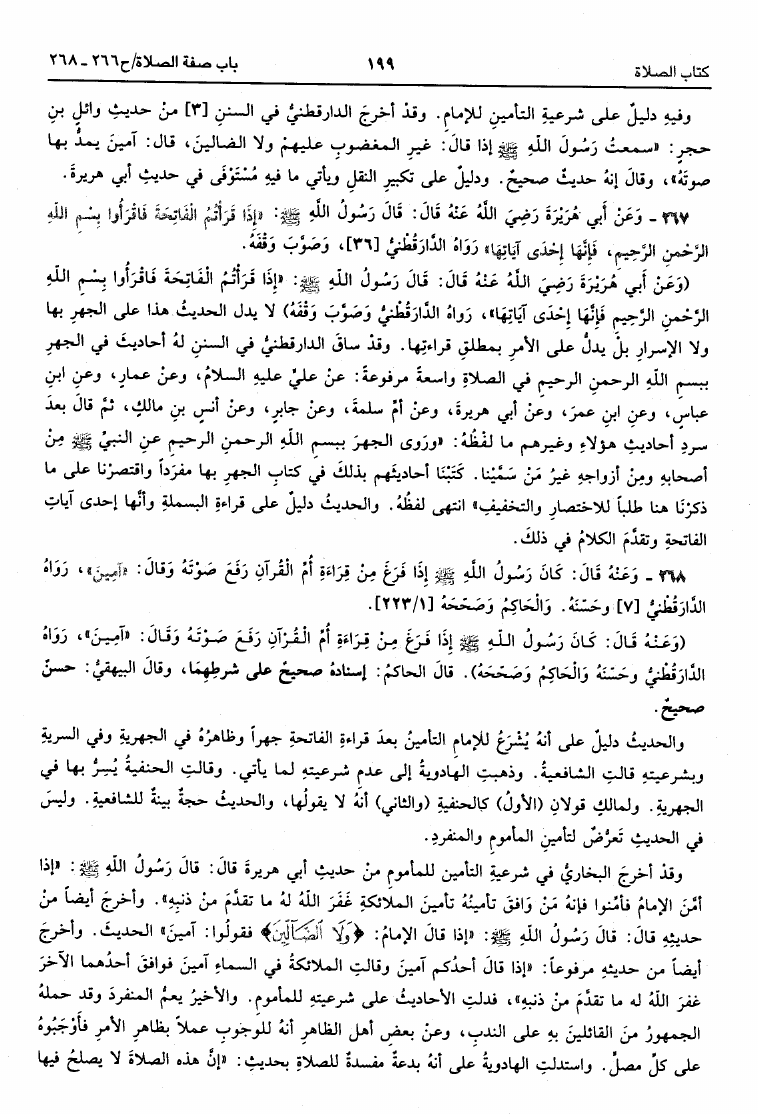 كتاب الصلاة
١٩٩
باب صفة الصلاة/ح٢٦٦ ـ ٢٦٨
وفيهِ دليلٌ على شرعيةِ التأمينِ للإمامِ. وقدْ أخرجَ الدارقطنيُّ في السننِ [٣] منْ حديثِ وائلِ بنِ
حجرٍ: «سمعتُ رَسُولَ اللَّهِ ﷺ إذا قالَ: غيرِ المغضوبِ عليهمْ ولا الضالينَ، قال: آمينَ يمدُّ بها
صوتَهُ»، وقالَ إنهُ حديثٌ صحيحٌ. ودليلٌ على تكبيرِ النقلِ ويأتي ما فيهِ مُسْتَوْفَى في حديثِ أبي هريرةَ.
٢٦٧ ـ وَعَنْ أَبي هُرَيْرَةَ رَضِيَ اللَّهُ عَنْهُ قَالَ: قَالَ رَسُولُ اللَّهِ ﷺ: «إذَا قَرَأْتُمُ الْفَاتِحَةَ فَاقْرَأُوا بِسْمِ اللَّهِ
الرَّحْمنِ الرَّحِيمِ، فَإنَّهَا إحْدَى آيَاتِهَا» رَوَاهُ الدَّارَقُطْنِيُّ [٣٦]، وَصَوَّبَ وَقْفَهُ.
(وَعَنْ أَبي هُرَيْرَةَ رَضِيَ اللَّهُ عَنْهُ قَالَ: قَالَ رَسُولُ اللَّهِ ﷺ: «إذَا قَرَأْتُمُ الْفَاتِحَةَ فَاقْرَأُوا بِسْمِ اللَّهِ
الرَّحْمنِ الرَّحِيمِ فَإنَّهَا إحْدَى آيَاتِهَا»، رَواهُ الدَّارَقُطْنيُّ وَصَوَّبَ وَقْفَهُ) لا يدل الحديثُ هذا على الجهرِ بها
ولا الإسرارِ بلْ يدلُّ على الأمرِ بمطلقِ قراءتِها. وقدْ ساقَ الدارقطنيُّ في السننِ لهُ أحاديثَ في الجهرِ
ببسمِ اللَّهِ الرحمنِ الرحيمِ في الصلاةِ واسعةً مرفوعةً: عنْ عليٍّ عليهِ السلامُ، وعنْ عمارٍ، وعنِ ابنِ
عباسٍ، وعنِ ابنِ عمرَ، وعنْ أبي هريرةَ، وعنْ أمِّ سلمةَ، وعنْ جابرٍ، وعنْ أنسِ بنِ مالكٍ، ثمَّ قالَ بعدَ
سردِ أحاديثِ هؤلاءِ وغيرهم ما لفْظُهُ: «ورَوى الجهرَ ببسمِ اللَّهِ الرحمنِ الرحيمِ عنِ النبيِّ ﷺ مِنْ
أصحابهِ ومِنْ أزواجهِ غيرُ مَنْ سَمَّيْنا. كَتَبْنَا أحاديثَهم بذلكَ في كتابِ الجهرِ بها مفرَداً واقتصرْنا على ما
ذكرْنَا هنا طلباً للاختصارِ والتخفيفِ» انتهى لفظُهُ. والحديثُ دليلٌ على قراءةِ البسملةِ وأنَّها إحدى آياتِ
الفاتحةِ وتقدَّمَ الكلامُ في ذلكَ.
٢٦٨ ـ وَعَنْهُ قَالَ: كَانَ رَسُولُ اللَّهِ ﷺ إذَا فَرَغَ مِنْ قِرَاءَةِ أُمِّ الْقُرآنِ رَفَعَ صَوْتَهُ وَقَالَ: «آمِينَ»، رَوَاهُ
الدَّارَقُطْنِيُّ [٧] وحَسَّنَهُ. وَالْحَاكِمُ وَصَحَّحَهُ [٢٢٣/١].
(وَعَنْهُ قَالَ: كَانَ رَسُولُ اللَّهِ ﷺ إذَا فَرَغَ مِنْ قِرَاءَةِ أُمِّ الْقُرْآنِ رَفَعَ صَوْتَهُ وَقَالَ: «آمِينَ»، رَوَاهُ
الدَّارَقُطْنيُّ وحَسَّنَهُ وَالْحَاكِمُ وَصَحَّحَهُ). قالَ الحاكمُ: إسنادهُ صحيحٌ على شرطِهِمَا، وقالَ البيهقيُّ: حسنٌ
صحيحٌ.
والحديثُ دليلٌ على أنهُ يُشْرَعُ للإمامِ التأمينُ بعدَ قراءةِ الفاتحةِ جهراً وظاهرُهُ في الجهريةِ وفي السريةِ
وبشرعيتهِ قالتِ الشافعيةُ. وذهبتِ الهادويةُ إلى عدمِ شرعيتهِ لما يأتي. وقالتِ الحنفيةُ يُسِرُّ بها في
الجهريةِ. ولمالكٍ قولانِ (الأولُ) كالحنفيةِ (والثاني) أنهُ لا يقولُها، والحديثُ حجةٌ بينةٌ للشافعيةِ. وليسَ
في الحديثِ تَعرُّضٌ لتأمينِ المأمومِ والمنفردِ.
وقدْ أخرجَ البخاريُّ في شرعيةِ التأمين للمأمومِ منْ حديثِ أبي هريرةَ قالَ: قالَ رَسُولُ اللَّهِ ﷺ: «إذا
أمَّنَ الإمامُ فأمِّنوا فإنهُ مَنْ وَافقَ تأمينُهُ تأمينَ الملائكةِ غَفَرَ اللَّهُ لهُ ما تقدَّمَ منْ ذنبِهِ». وأخرجَ أيضاً منْ
حديثهِ قالَ: قالَ رَسُولُ اللَّهِ ﷺ: «إذا قالَ الإمامُ: ﴿وَلَا ٱلضَّآلِّينَ﴾ فقولُوا: آمينَ» الحديثَ. وأخرجَ
أيضاً من حديثهِ مرفوعاً: «إذا قالَ أحدُكم آمينَ وقالتِ الملائكةُ في السماءِ آمينَ فوافقَ أحدُهما الآخرَ
غفرَ اللَّهُ له ما تقدَّمَ منْ ذنبهِ»، فدلتِ الأحاديثُ على شرعيتهِ للمأمومِ. والأخيرُ يعمُّ المنفردَ وقد حملهُ
الجمهورُ منَ القائلينَ بهِ على الندبِ، وعنْ بعضِ أهل الظاهرِ أنهُ للوجوبِ عملاً بظاهرِ الأمرِ فأَوْجَبُوهُ
على كلِّ مصلٍّ. واستدلتِ الهادويةُ على أنهُ بدعةٌ مفسدةٌ للصلاةِ بحديثِ: «إنَّ هذه الصلاةَ لا يصلحُ فيها